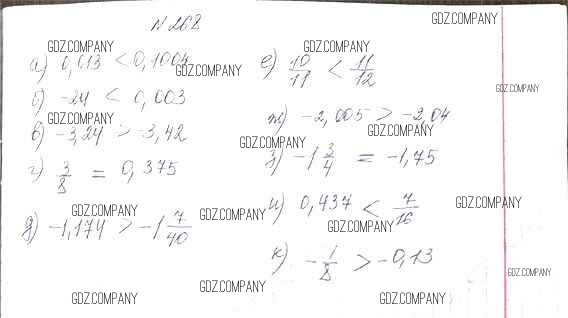 N 268
GDZ.COMPANY
а) 0,013 < 0,1004
GDZ.COMPANY
GDZ.COMPANY
б) -24 < 0,003
GDZ.COMPANY
в) -3,24 > -3,42
г) 3/8 = 0,375
GDZ.COMPANY
GDZ.COMPANY
д) -1,174 > -1 7/40
GDZ.COMPANY
GDZ.COMPANY
GDZ.COMPANY
е) 10/11 < 11/12
GDZ.COMPANY
ж) -2,005 > -2,04
GDZ.COMPANY
GDZ.COMPANY
з) -1 3/4 = -1,75
и) 0,437 < 7/16
GDZ.COMPANY
GDZ.COMPANY
к) -1/8 > -0,13
GDZ.COMPANY
GDZ.COMPANY